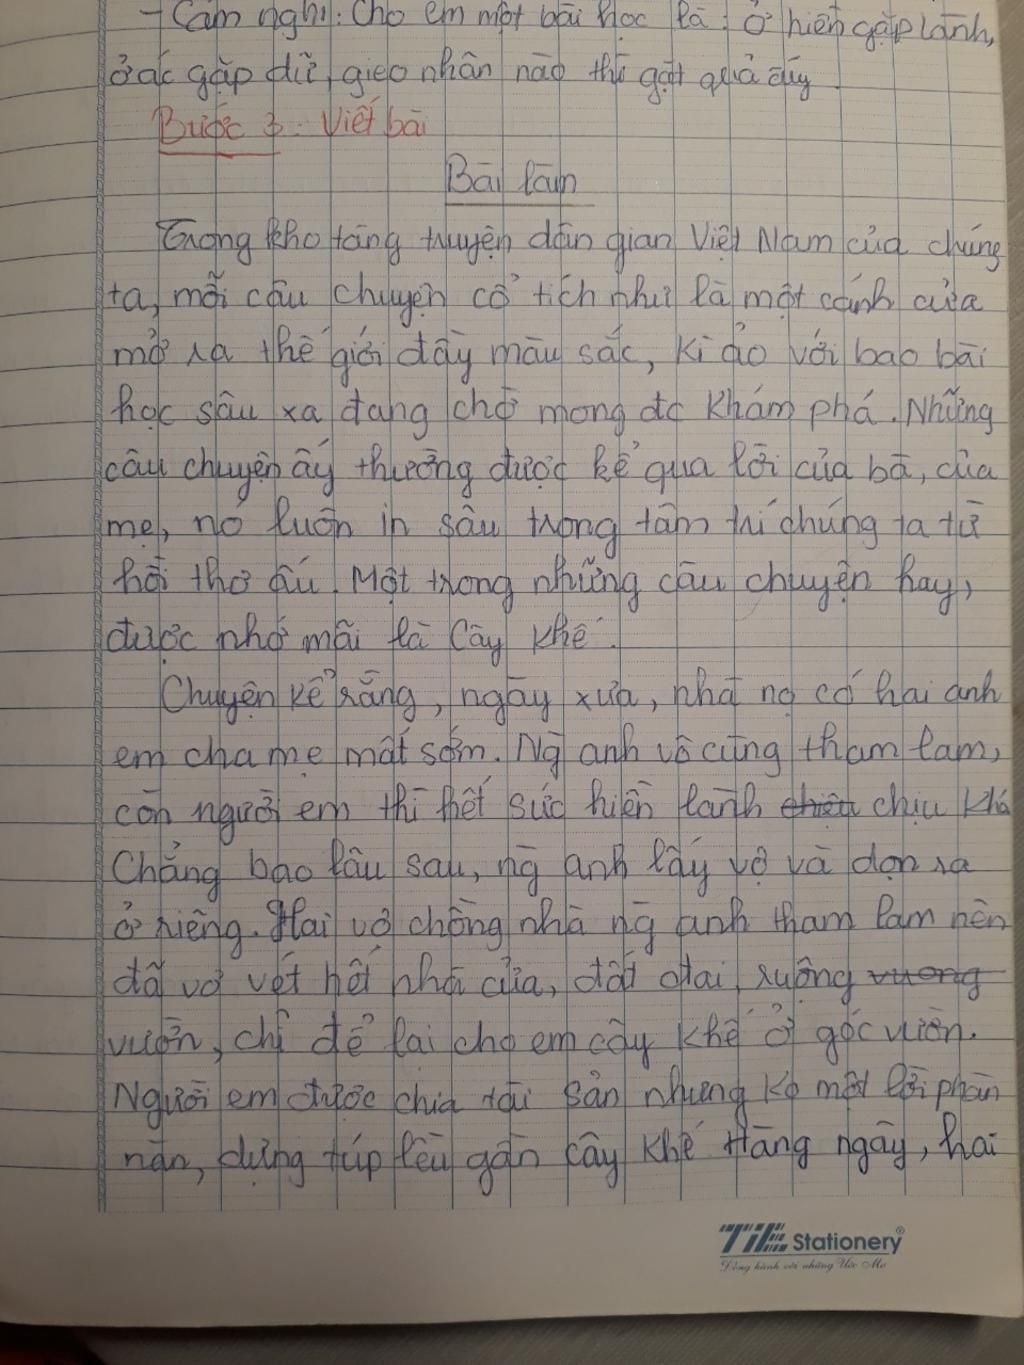 - Cảm nghĩ: Cho em một bài học là: ở hiền gặp lành,
ở ác gặp dữ, gieo nhân nào thì gặt quả đấy
Bước 3: Viết bài
Bài làm
Trong kho tàng truyện dân gian Việt Nam của chúng
ta, mỗi câu chuyện cổ tích như là một cánh cửa
mở ra thế giới đầy màu sắc, kì ảo với bao bài
học sâu xa đang chờ mong đc khám phá. Những
câu chuyện ấy thường được kể qua lời của bà, của
mẹ, nó luôn in sâu trong tâm trí chúng ta từ
hồi thơ ấu. Một trong những câu chuyện hay,
được nhớ mãi là Cây khế.
Chuyện kể rằng, ngày xưa, nhà nọ có hai anh
em cha mẹ mất sớm. Ng anh vô cùng tham lam,
còn người em thì hết sức hiền lành chịu khó
Chẳng bao lâu sau, ng anh lấy vợ và dọn ra
ở riêng. Hai vợ chồng nhà ng anh tham lam nên
đã vơ vét hết nhà cửa, đất đai, ruộng vuong
vườn, chỉ để lại cho em cây khế ở góc vườn.
Người em được chia tài sản nhưng ko một lời phàn
nàn, dựng túp lều gần cây khế Hàng ngày, hai
TiE Stationery®
Đồng hành với những Ước Mơ